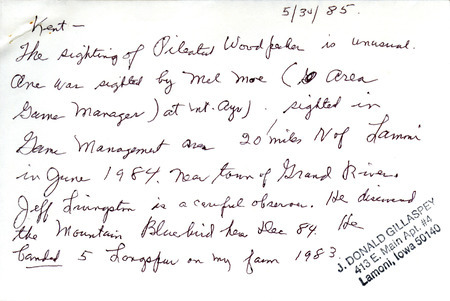 5/30/85.
Kent —
The sighting of Pileated Woodpecker is unusual.
One was sighted by Mel Moe ( Area
Game Manager) at Mt. Ayr). sighted in
Game Management area 20 miles N of Lamoni
in June 1984. Near town of Grand River.
Jeff Livingston is a careful observer. He discovered
the Mountain Bluebird here Dec 84. He
banded 5 Longspur on my farm 1983.
J. DONALD GILLASPEY
413 E. Main Apt. #4
Lamoni, Iowa 50140